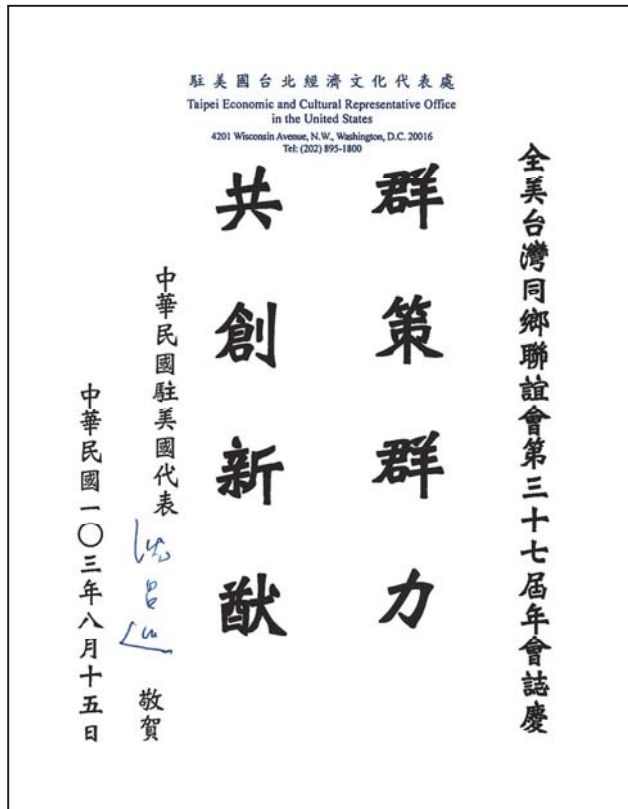 駐美國台北經濟文化代表處
Taipei Economic and Cultural Representative Office
in the United States
4201 Wisconsin Avenue, N.W., Washington, D.C. 20016
Tel: (202) 895-1800
全美台灣同鄉聯誼會第三十七屆年會誌慶
群策群力
共創新猷
中華民國駐美國代表 沈呂巡 敬賀
中華民國一〇三年八月十五日